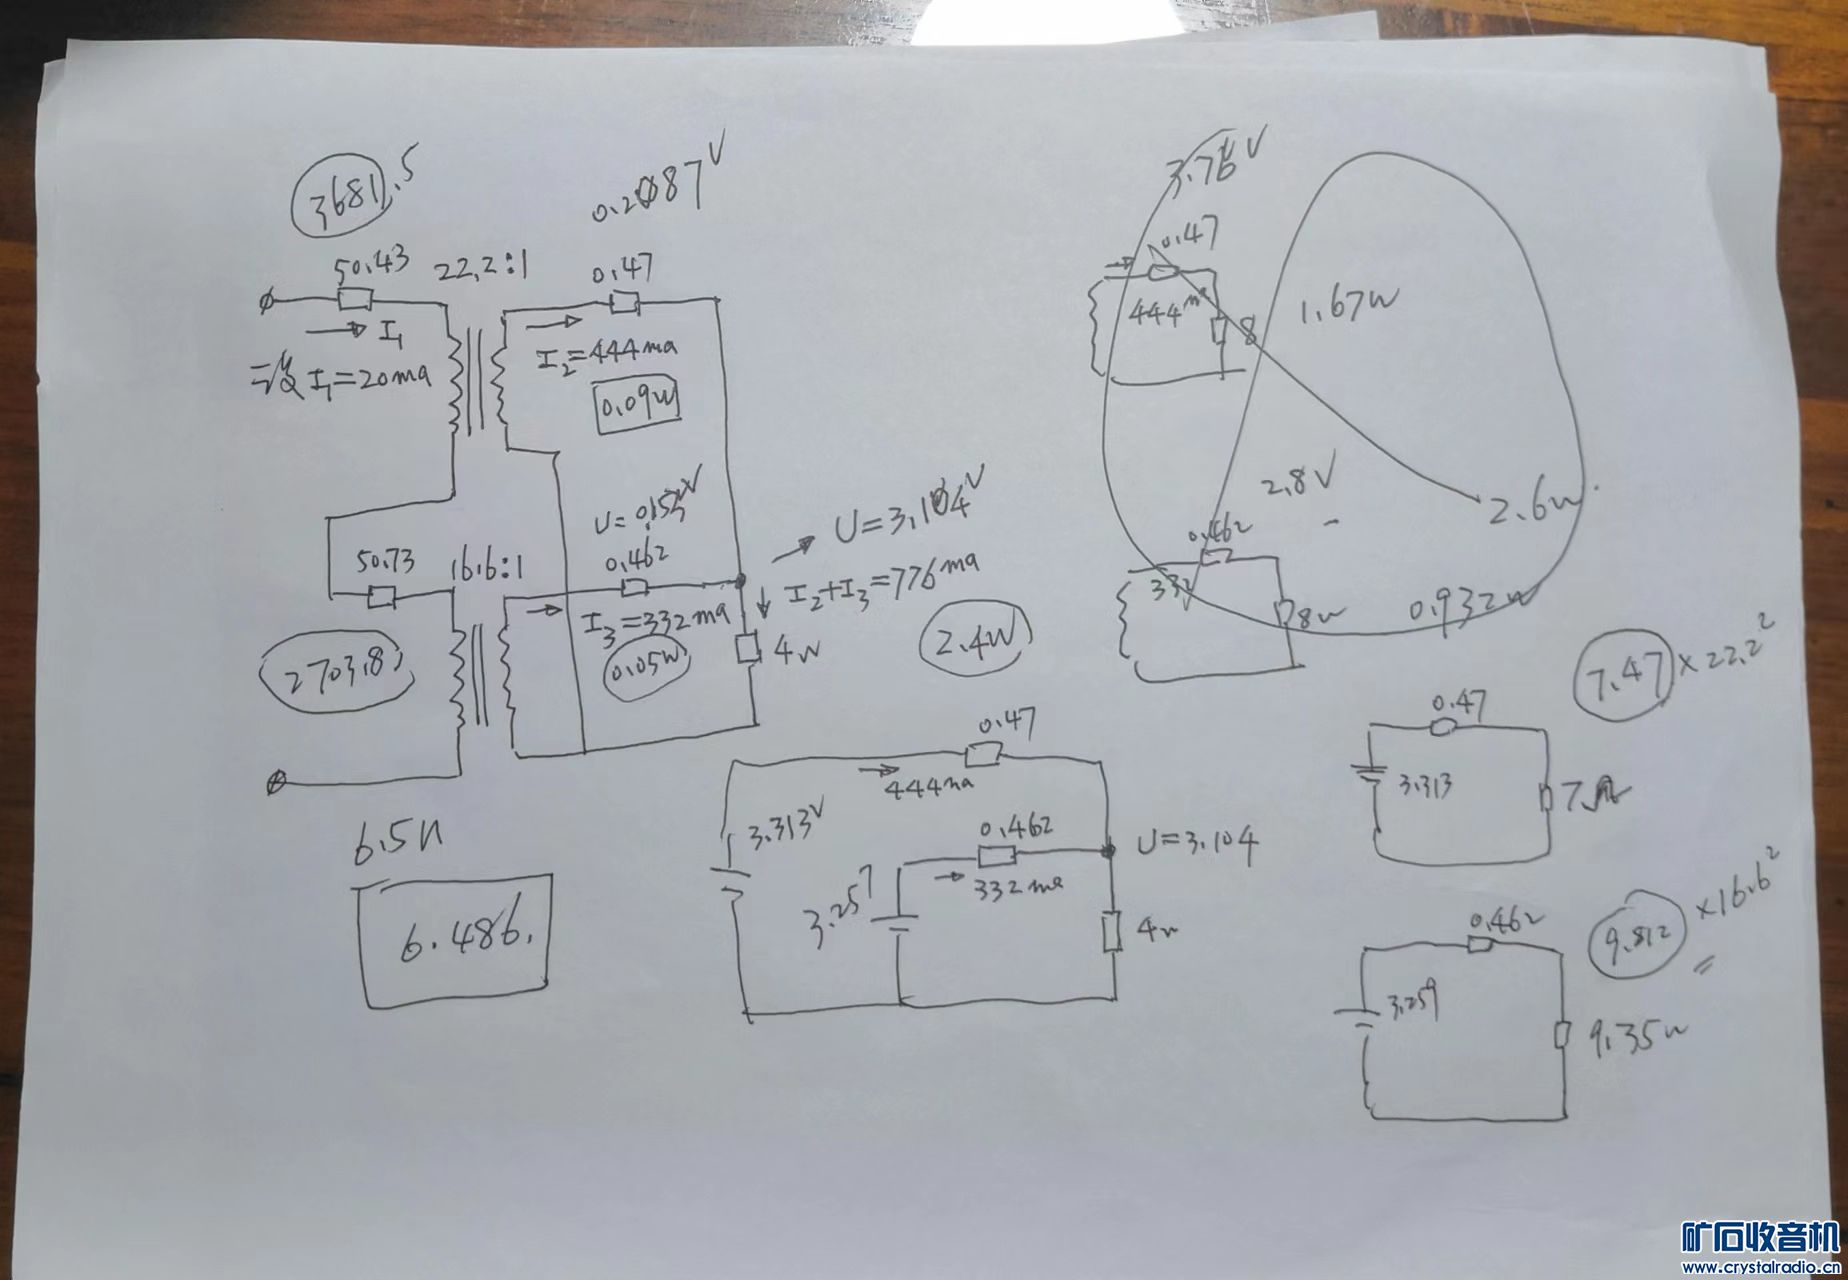 3681.5
50.43
22.2:1
I₁
I₁=20ma
0.2087V
0.47
I₂=444ma
0.09W
50.73
16.6:1
2703.8
U=0.153V
0.462
I₃=332ma
0.05W
4Ω
U=3.104V
I₂+I₃=776ma
2.4W
6.5K
6.486.
3.313V
0.47
444ma
3.257
0.462
332ma
U=3.104
4Ω
3.76V
0.47
444ma
8
1.67W
2.8V
2.6W
0.462
332
8Ω
0.932W
7.47×22.2²
0.47
3.313
7Ω
9.812×16.6²
0.462
3.259
9.35Ω
矿石收音机
www.crystalradio.cn